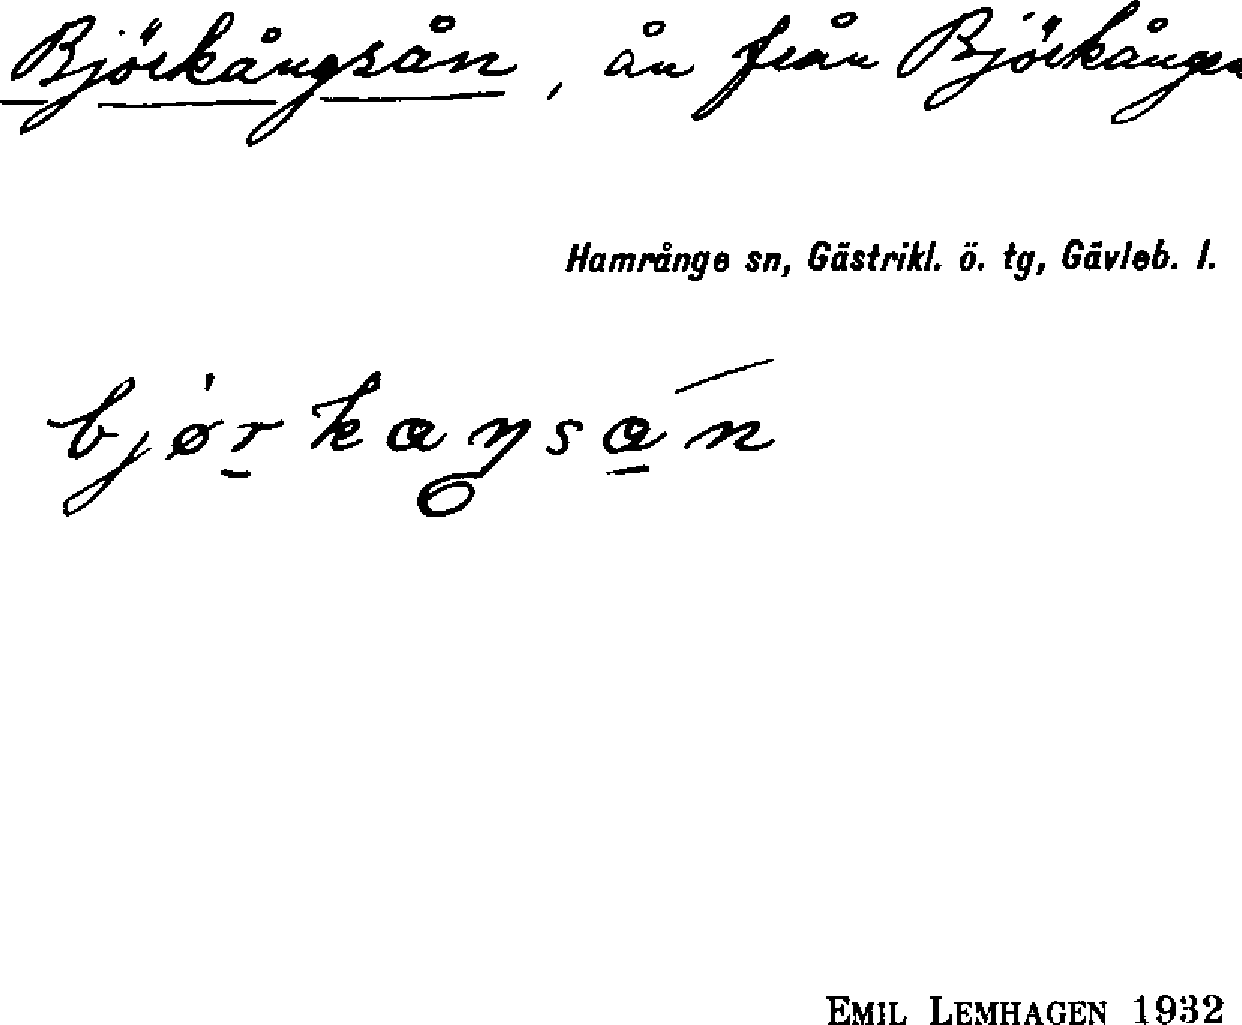 Björkångsån, ån från Björkången
Hamrånge sn, Gästrikl. ö. tg, Gävleb. l.
bjørkaŋsan
EMIL LEMHAGEN 1932